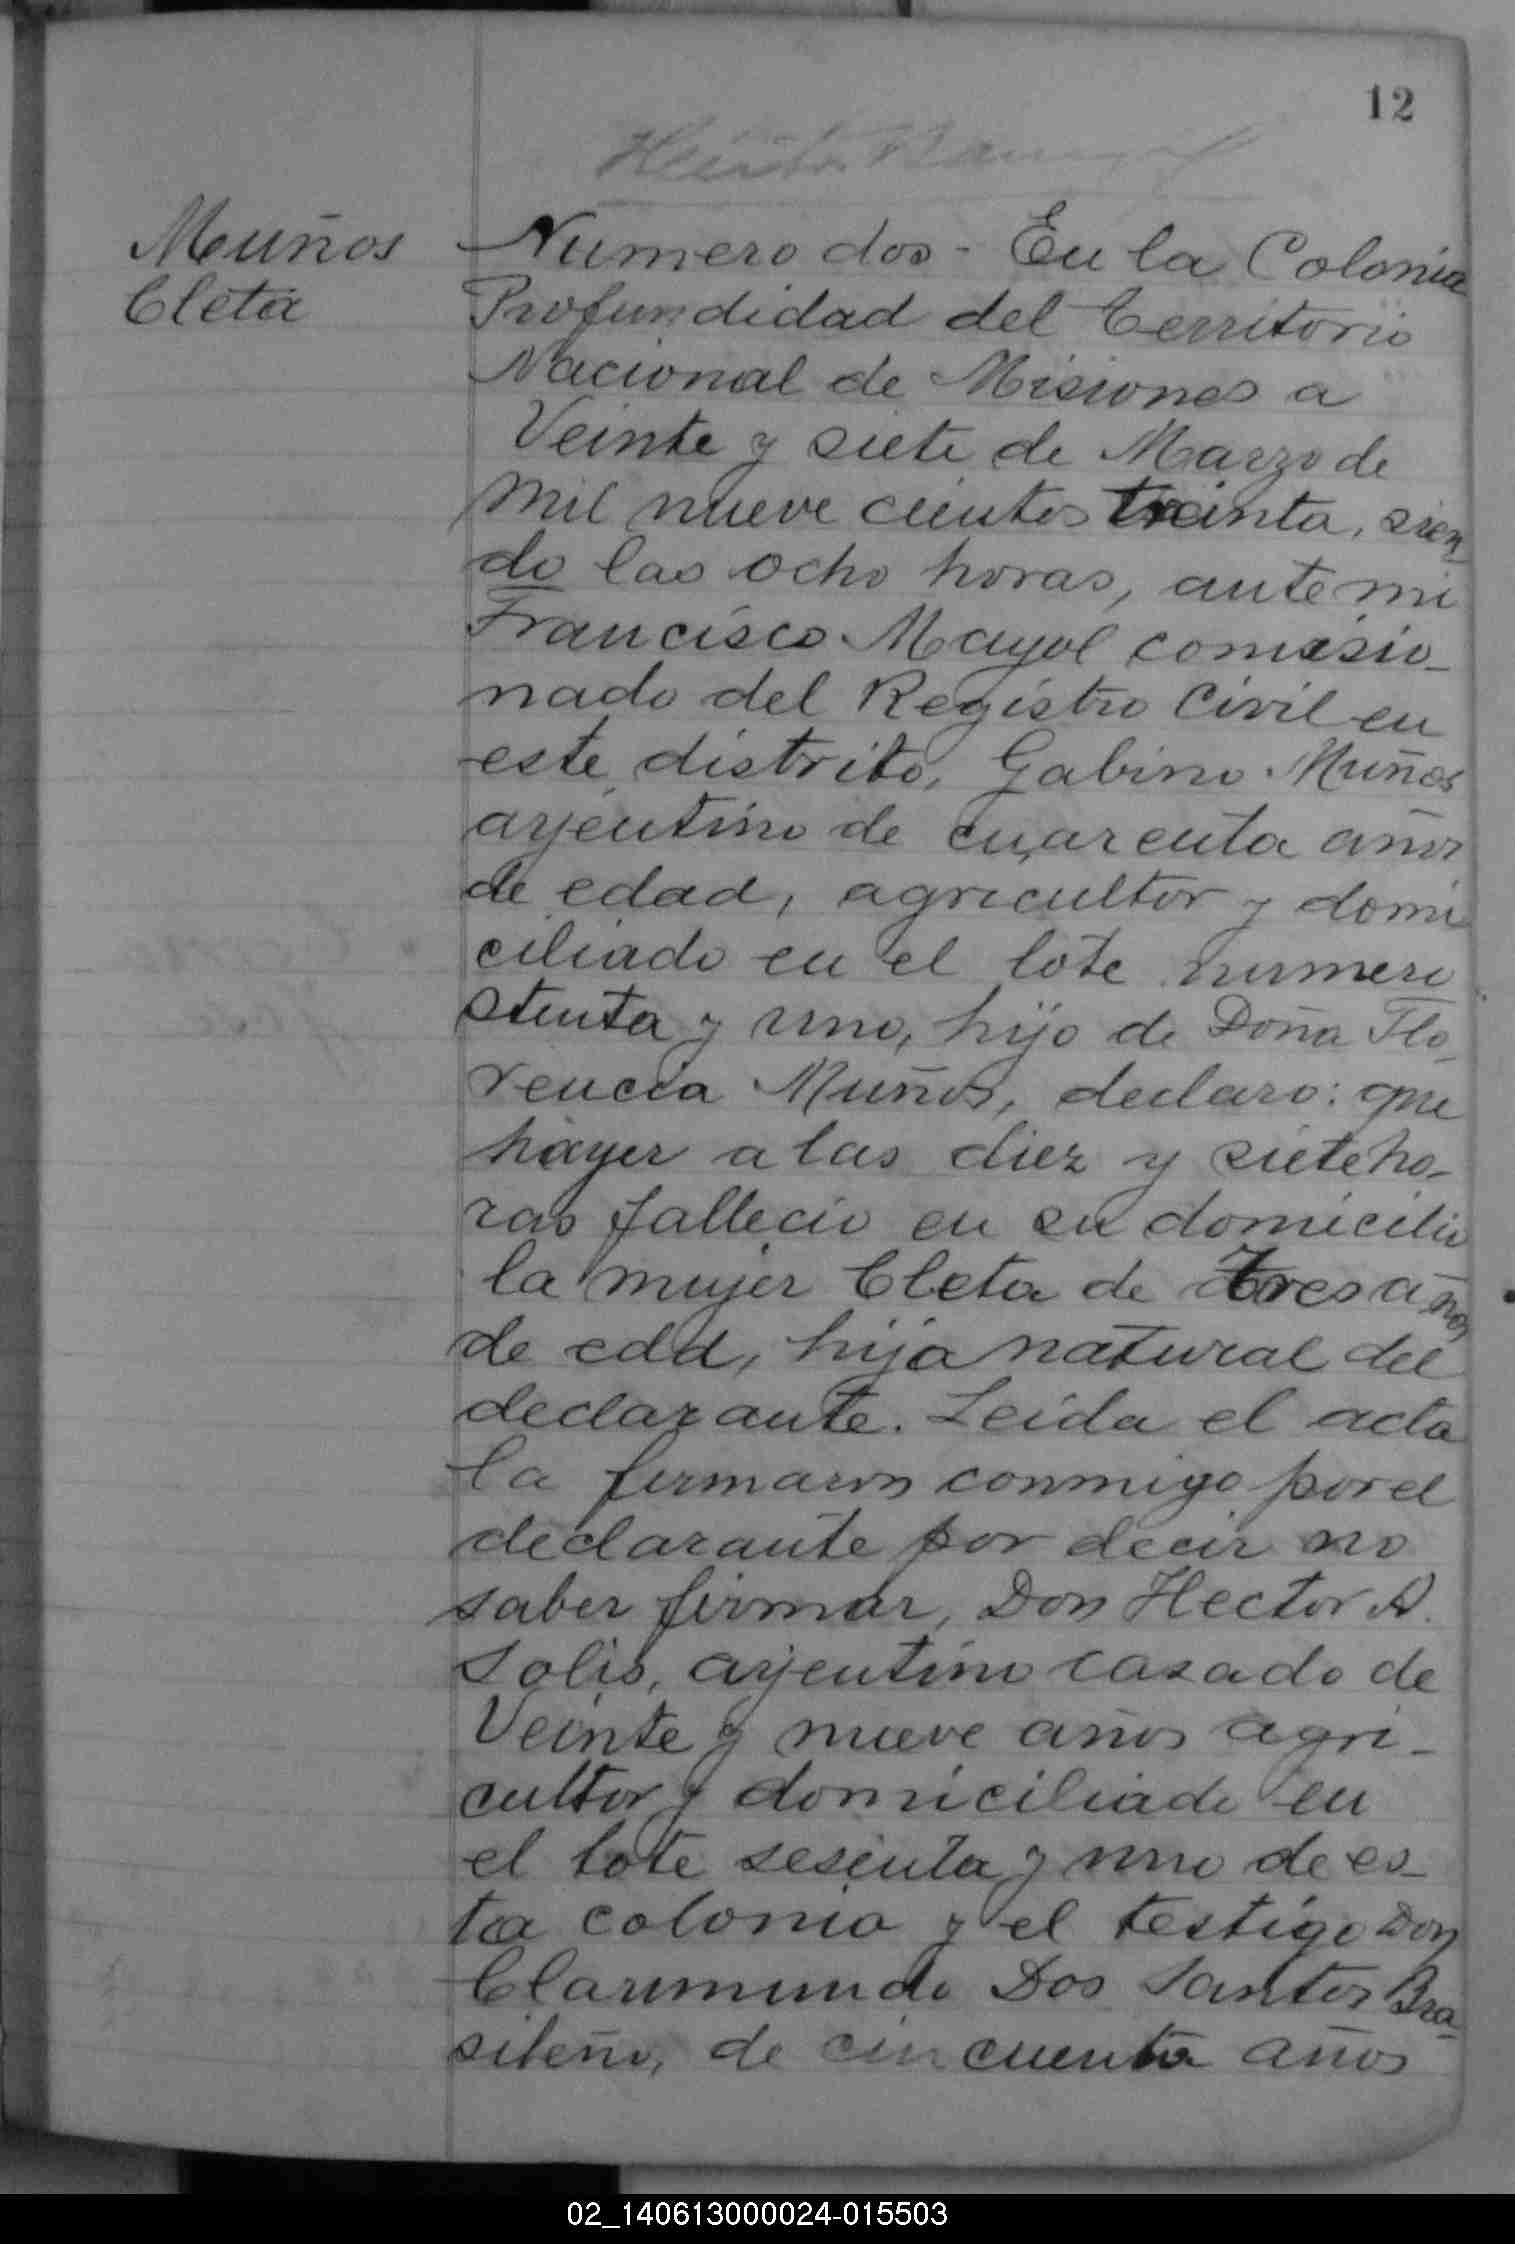 12
Muños
Cleta
Numero dos - En la Colonia
Profundidad del Territorio
Nacional de Misiones a
Veinte y siete de Marzo de
mil nueve cientos treinta, sien
do las ocho horas, ante mi
Francisco Mayol comisio-
nado del Registro Civil en
este distrito, Gabino Muños
arjentino de cuarenta años
de edad, agricultor y domi
ciliado en el lote numero
stenta y uno, hijo de Doña Flo-
rencia Muños, declaro: que
hayer a las diez y siete ho-
ras fallecio en su domicilio
la mujer Cleta de tres años
de edd, hija natural del
declarante. Leida el acta
la firmaron conmigo por el
declarante por decir no
saber firmar, Don Hector A.
Solis, arjentino casado de
Veinte y nueve años agri-
cultor y domiciliado en
el lote sesenta y uno de es-
ta colonia y el testigo Don
Clarimundo Dos Santos Bra-
sileño, de cincuenta años
02_140613000024-015503